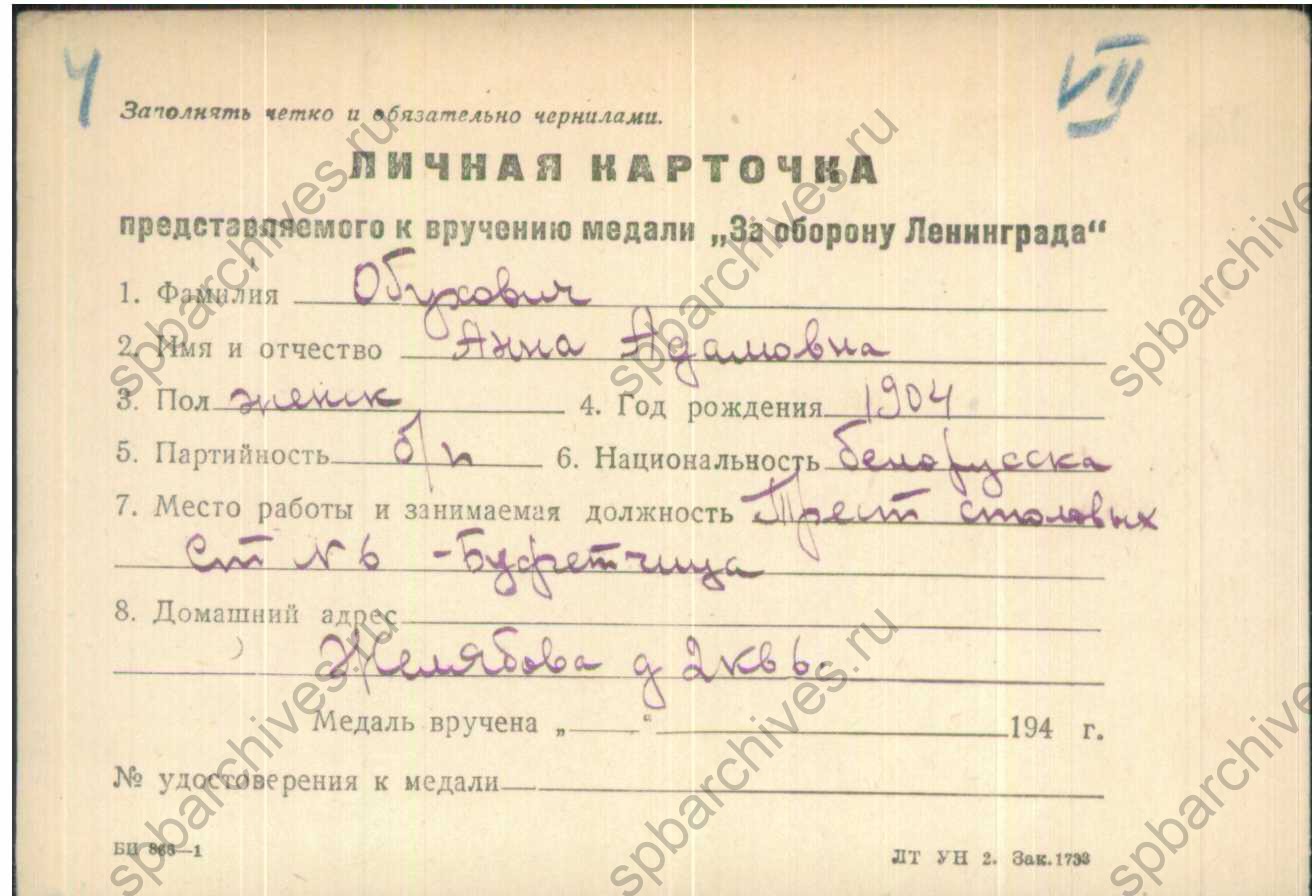 Ч VII
Заполнять четко и обязательно чернилами.
ЛИЧНАЯ КАРТОЧКА
представляемого к вручению медали „За оборону Ленинграда“
1. Фамилия Обухович
2. Имя и отчество Анна Адамовна
3. Пол женск 4. Год рождения 1904
5. Партийность б/п 6. Национальность белорусска
7. Место работы и занимаемая должность Трест столовых
Ст № 6 - Буфетчица
8. Домашний адрес
Желябова д 2 кв 6.
Медаль вручена „ “ 194 г.
№ удостоверения к медали
БИ 866—1 ЛТ УН 2. Зак. 1793
spbarchives.ru